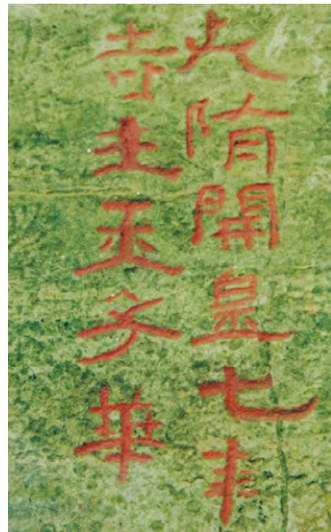 大隋開皇七年
寺主王子華